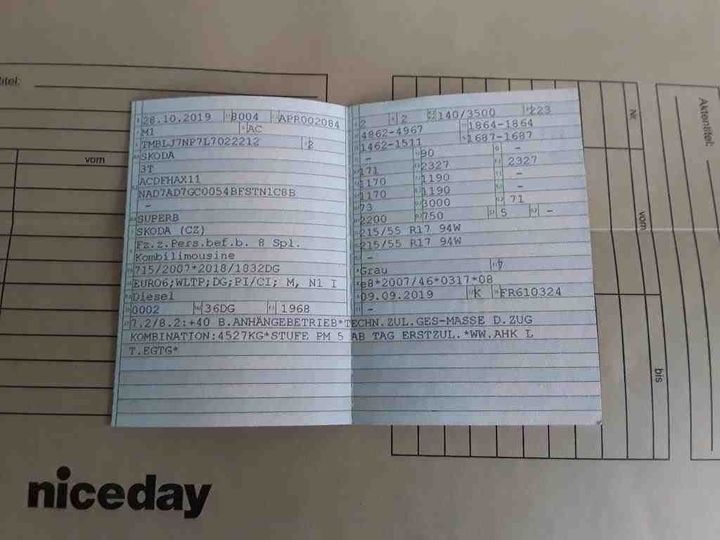 titel:
vom
28.10.2019 8004 APR002084
M1 AC
TMBLJ7NP7L7022212 2
SKODA
3T
ACDFHAX11
NAD7AD7GC0054BFSTN1C8B
-
SUPERB
SKODA (CZ)
Fz.z.Pers.bef.b. 8 Spl.
Kombilimousine
715/2007*2018/1832DG
EURO6;WLTP;DG;PI/CI; M, N1 I
Diesel
0002 36DG 1968
7.2/8.2:+40 B.ANHÄNGEBETRIEB*TECHN.ZUL.GES-MASSE D.ZUG
KOMBINATION:4527KG*STUFE PM 5 AB TAG ERSTZUL.*WW.AHK L
T.EGTG*
2 2 140/3500 223
4862-4967 1864-1864
1462-1511 1687-1687
- 90 -
171 2327 2327
1170 1190 -
1170 1190 -
73 3000 71
2200 750 5 -
215/55 R17 94W
215/55 R17 94W
-
Grau
e8*2007/46*0317*08
09.09.2019 K FR610324
-
Nr.
vom
bis
Aktentitel:
niceday